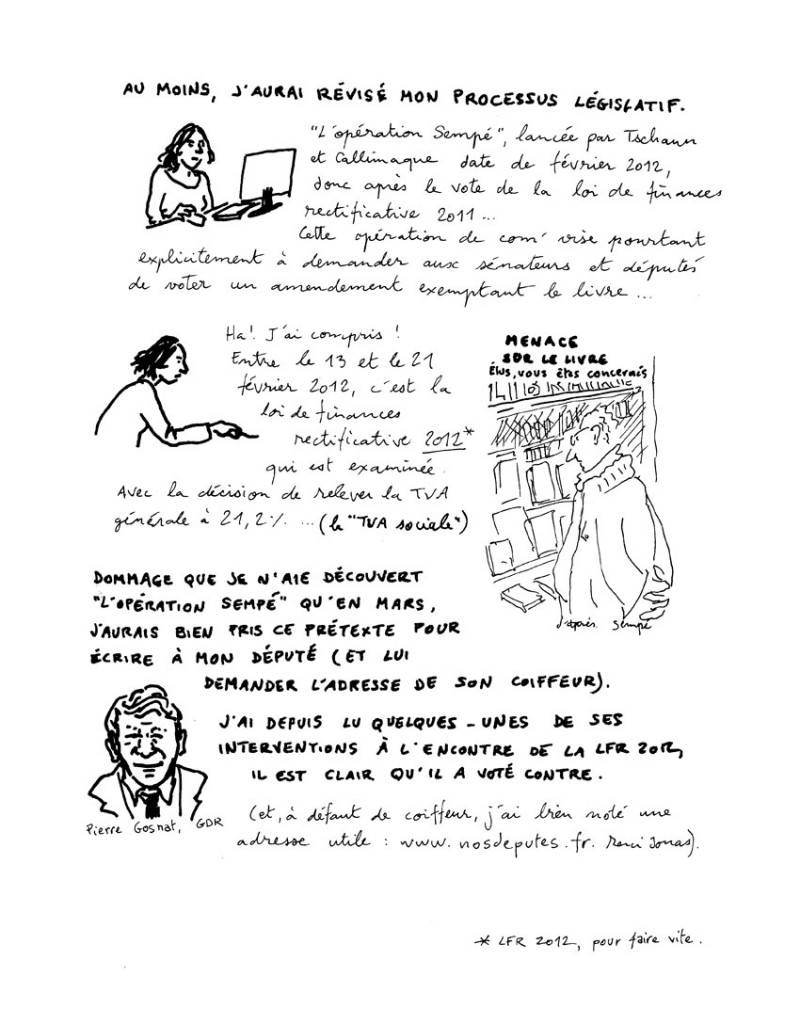 AU MOINS, J'AURAI RÉVISÉ MON PROCESSUS LÉGISLATIF.
"L'opération Sempé", lancée par Tschann
et Callimaque date de février 2012,
donc après le vote de la loi de finances
rectificative 2011...
Cette opération de com' vise pourtant
explicitement à demander aux sénateurs et députés
de voter un amendement exemptant le livre...
Ha! J'ai compris!
Entre le 13 et le 21
février 2012, c'est la
loi de finances
rectificative 2012*
qui est examinée.
Avec la décision de relever la TVA
générale à 21,2%. ...(la "TVA sociale")
MENACE
SUR LE LIVRE
Élus, vous êtes concernés
d'après Sempé
DOMMAGE QUE JE N'AIE DÉCOUVERT
"L'OPÉRATION SEMPÉ" QU'EN MARS,
J'AURAIS BIEN PRIS CE PRÉTEXTE POUR
ÉCRIRE À MON DÉPUTÉ (ET LUI
DEMANDER L'ADRESSE DE SON COIFFEUR).
J'AI DEPUIS LU QUELQUES-UNES DE SES
INTERVENTIONS À L'ENCONTRE DE LA LFR 2012,
IL EST CLAIR QU'IL A VOTÉ CONTRE.
Pierre Gosnat, GDR
(et, à défaut de coiffeur, j'ai bien noté une
adresse utile : www.nosdeputes.fr. Merci Jonas).
* LFR 2012, pour faire vite.